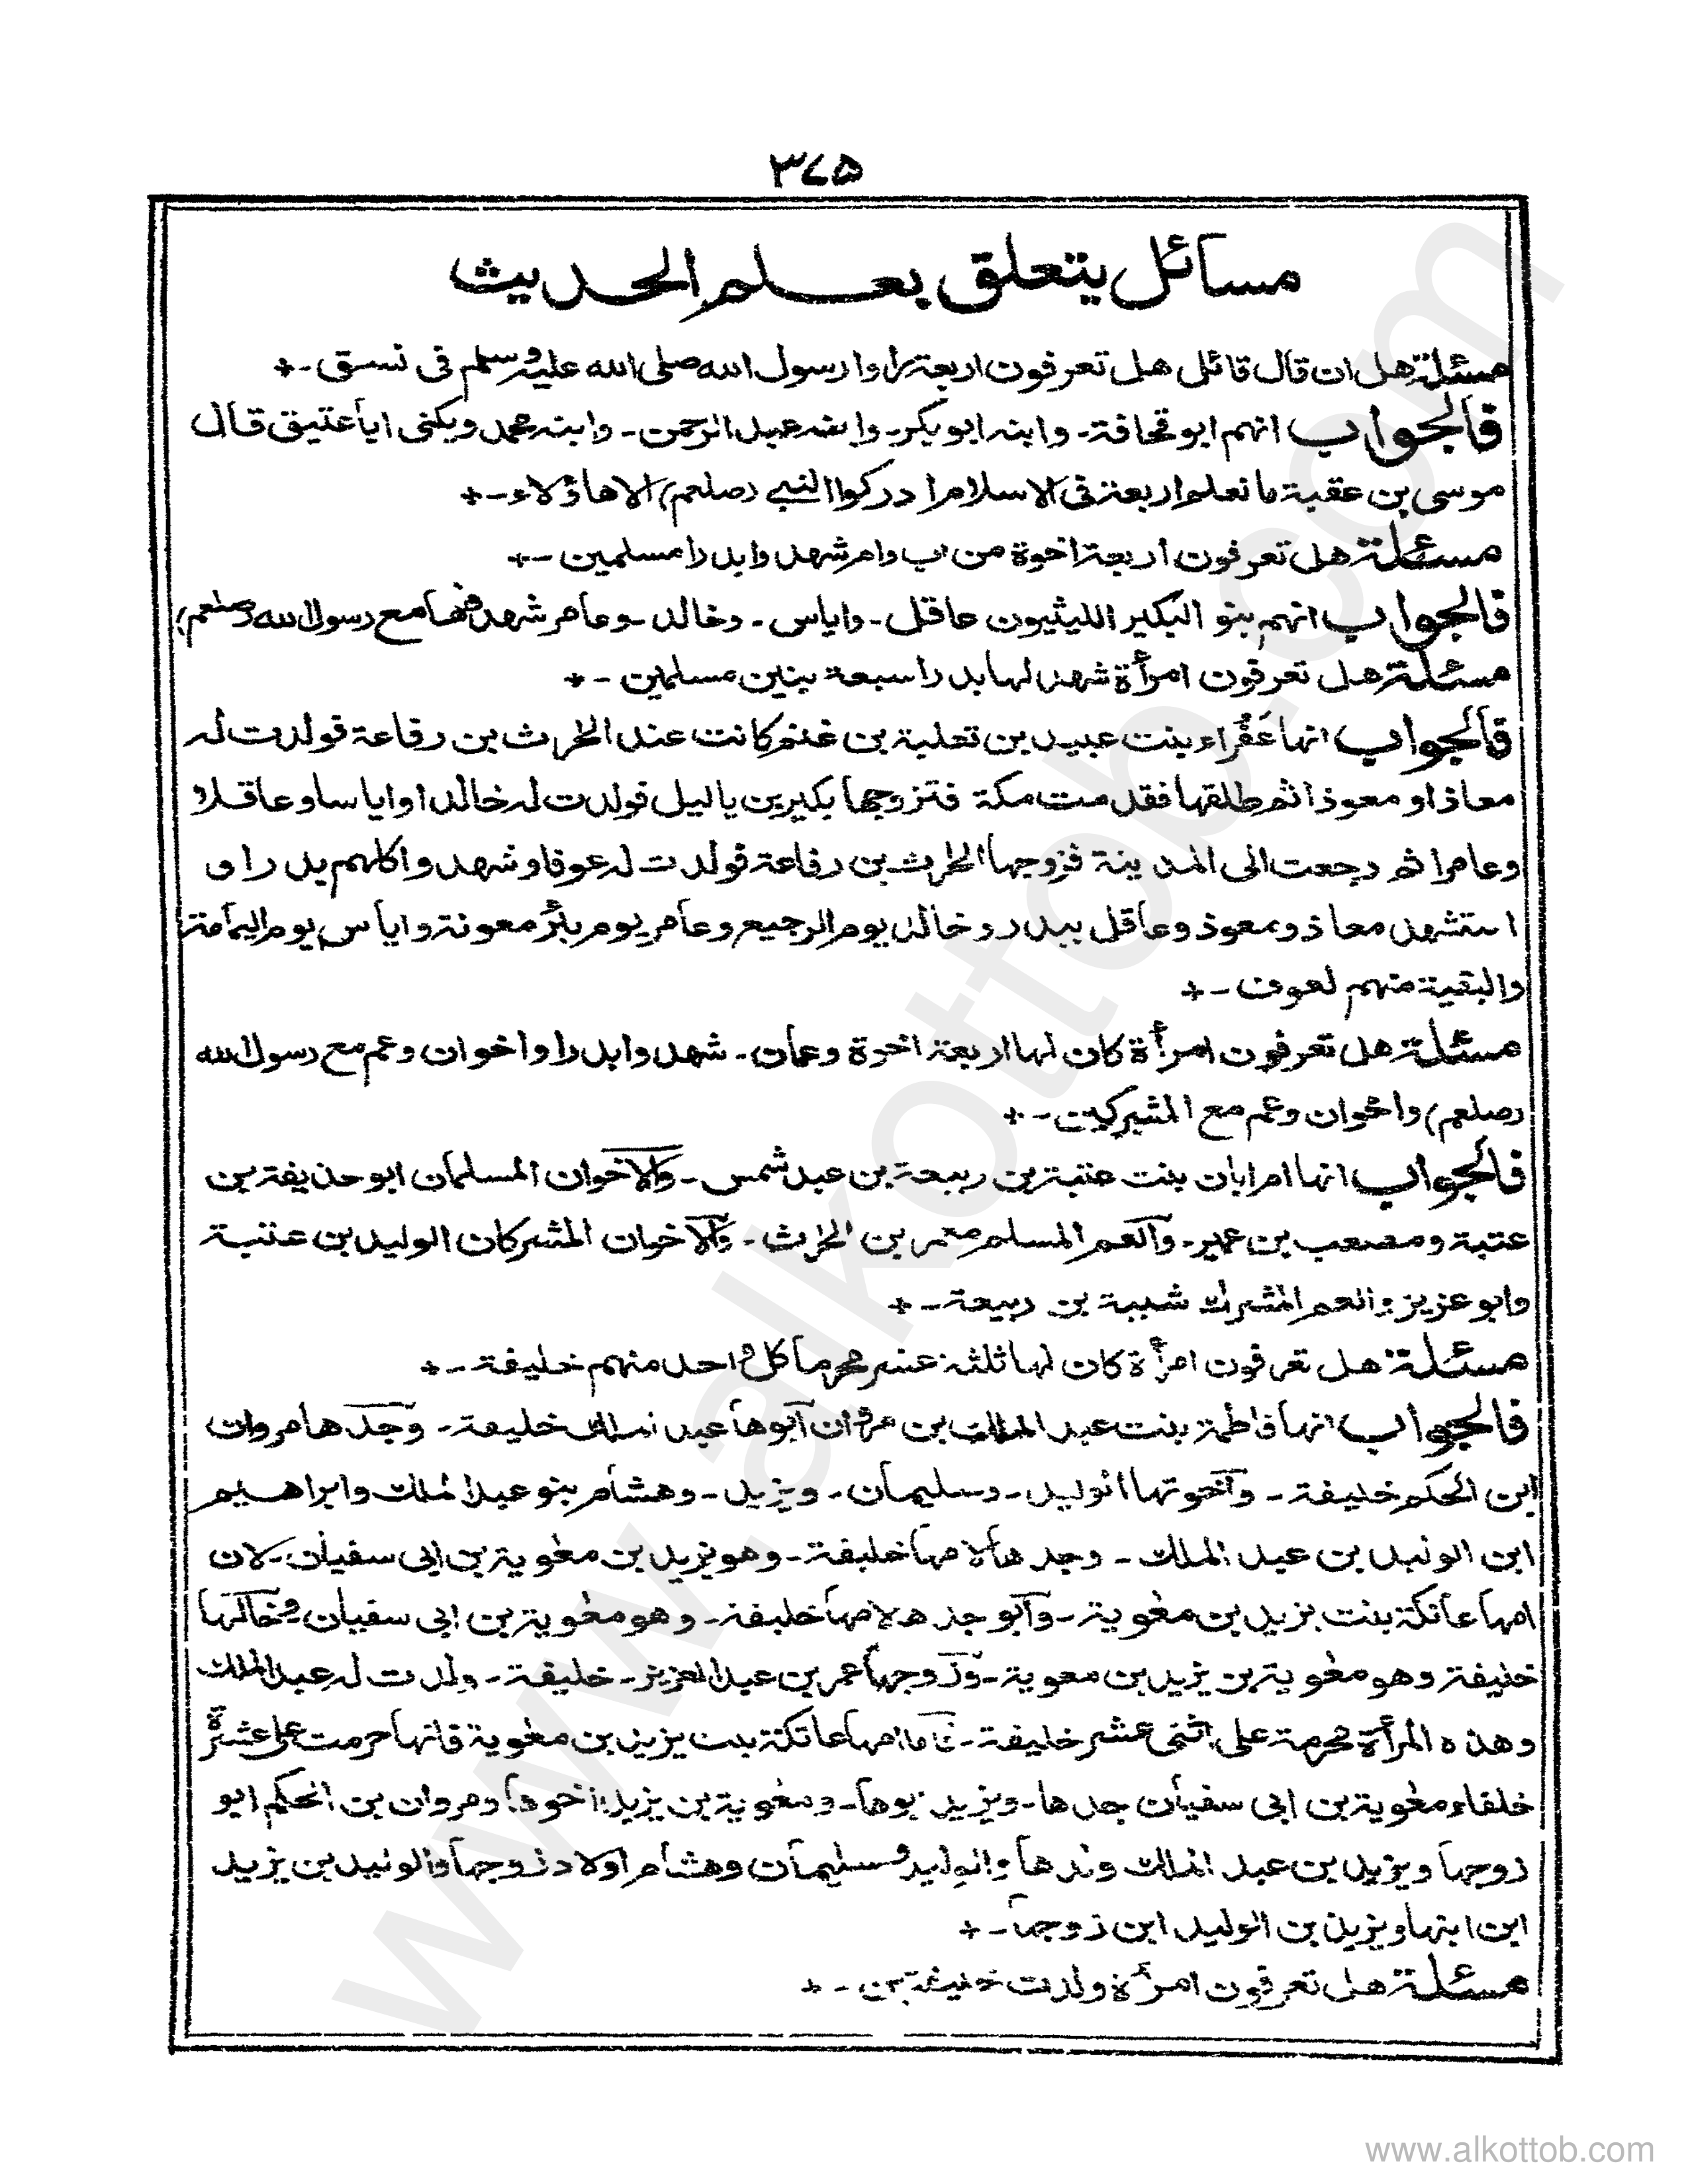 ٣٤٥
مسائل يتعلق بعلم الحديث
مسئلة هل ان قال قائل هل تعرفون اربعة راوا رسول الله صلى الله عليه وسلم فى نسق -+
فالجواب انهم ابو قحافة - وابنه ابو بكر - وابنه عبد الرحمن - وابنه محمد ويكنى ابا عتيق قال
موسى بن عقبة ما نعلم اربعة فى الاسلام ادركوا النبى (صلعم) الا هاؤلاء -+
مسئلة هل تعرفون اربعة اخوة من اب وام شهدوا بدرا مسلمين -+
فالجواب انهم بنو البكير الليثيون عاقل - واياس - وخالد - وعامر شهد فيها مع رسول الله (صلعم)
مسئلة هل تعرفون امرأة شهد لها بدرا سبعة بنين مسلمين -+
فالجواب انها عفراء بنت عبيد بن ثعلبة بن غنم كانت عند الحرث بن رفاعة فولدت له
معاذا ومعوذا ثم طلقها فقدمت مكة فتزوجها بكير بن ياليل فولدت له خالدا وايا سا وعاقلا
وعامرا ثم رجعت الى المدينة فزوجها الحرث بن رفاعة فولدت له عوفا وشهدوا كلهم بدرا و
استشهد معاذ ومعوذ وعاقل ببدر وخالد يوم الرجيع وعامر يوم بئر معونة واياس يوم اليمامة
والبقية منهم لعوف -+
مسئلة هل تعرفون امرأة كان لها اربعة اخوة وعمان - شهدوا بدرا واخوان وعم مع رسول الله
(صلعم) واخوان وعم مع المشركين -+
فالجواب انها ام ابان بنت عتبة بن ربيعة بن عبد شمس - والاخوان المسلمان ابو حذيفة بن
عتبة ومصعب بن عمير - والعم المسلم معمر بن الحرث - والاخوان المشركان الوليد بن عتبة
وابو عزيز والعم المشرك شيبة بن ربيعة -+
مسئلة هل تعرفون امرأة كان لها ثلثة عشر محرما كل واحد منهم خليفة -+
فالجواب انها فاطمة بنت عبد الملك بن مروان ابوها عبد الملك خليفة - وجدها مروان
ابن الحكم خليفة - واخوتها الوليد - وسليمان - ويزيد - وهشام بنو عبد الملك وابراهيم
ابن الوليد بن عبد الملك - وجدها لامها خليفة - وهو يزيد بن معوية بن ابى سفيان - لان
امها عاتكة بنت يزيد بن معوية - وابو جدها لامها خليفة - وهو معوية بن ابى سفيان - وخالها
خليفة وهو معوية بن يزيد بن معوية - وزوجها عمر بن عبد العزيز - خليفة - ولدت له عبد الملك
وهذه المرأة محرمة على اثنى عشر خليفة - فاما امها عاتكة بنت يزيد بن معوية فانها حرمت على عشرة
خلفاء معوية بن ابى سفيان جدها - ويزيد ابوها - ومعوية بن يزيد اخوها ومروان بن الحكم ابو
زوجها ويزيد بن عبد الملك ولدها والوليد وسليمان وهشام اولاد زوجها والوليد بن يزيد
ابن ابنها ويزيد بن الوليد ابن زوجها -+
مسئلة هل تعرفون امرأة ولدت خليفتين -+
www.alkottob.com
www.alkottob.com